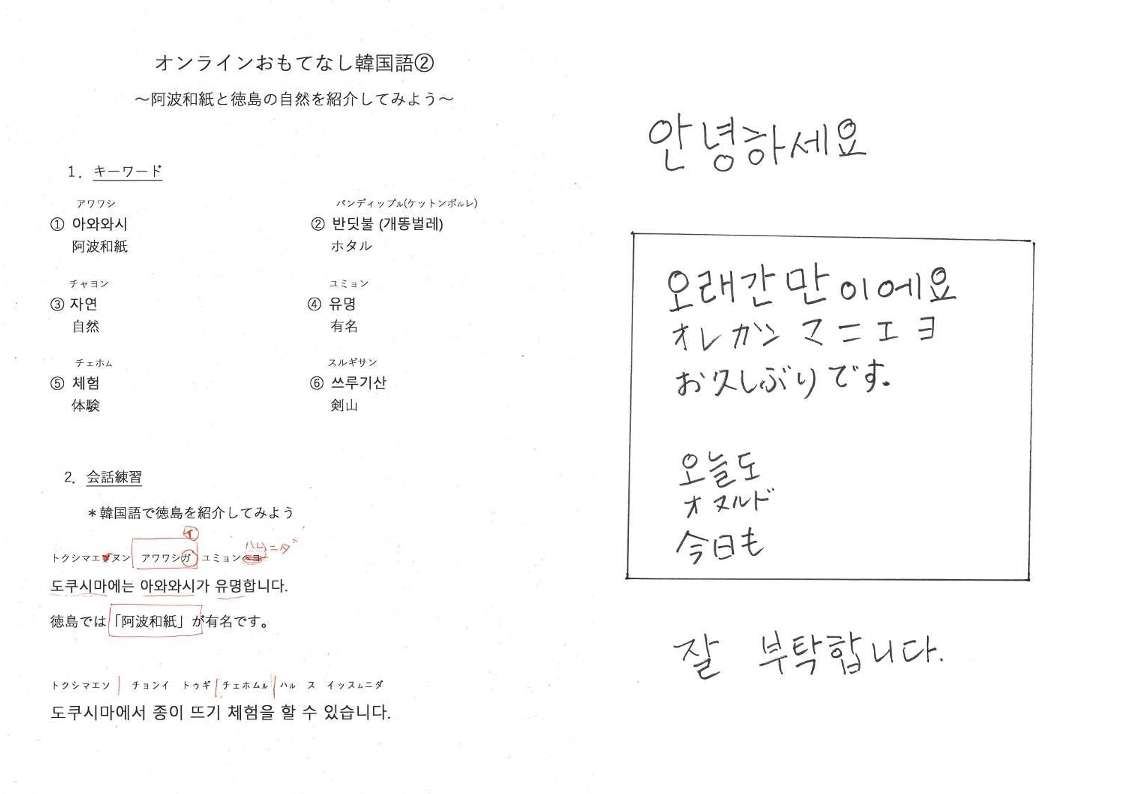 オンラインおもてなし韓国語②
～阿波和紙と徳島の自然を紹介してみよう～
1．キーワード
アワワシ
① 아와와시
阿波和紙
バンディップル(ケットンボルレ)
② 반딧불 (개똥벌레)
ホタル
チャヨン
③ 자연
自然
ユミョン
④ 유명
有名
チェホム
⑤ 체험
体験
スルギサン
⑥ 쓰루기산
剣山
2．会話練習
＊韓国語で徳島を紹介してみよう
イ
ハムニダ
トクシマエヌン アワワシガ ユミョン
도쿠시마에는 아와와시가 유명합니다.
徳島では「阿波和紙」が有名です。
トクシマエソ チョンイ トゥギ チェホムル ハル ス イッスムニダ
도쿠시마에서 종이 뜨기 체험을 할 수 있습니다.
안녕하세요
오래간만이에요
オレカンマニエヨ
お久しぶりです。
오늘도
オヌルド
今日も
잘 부탁합니다.